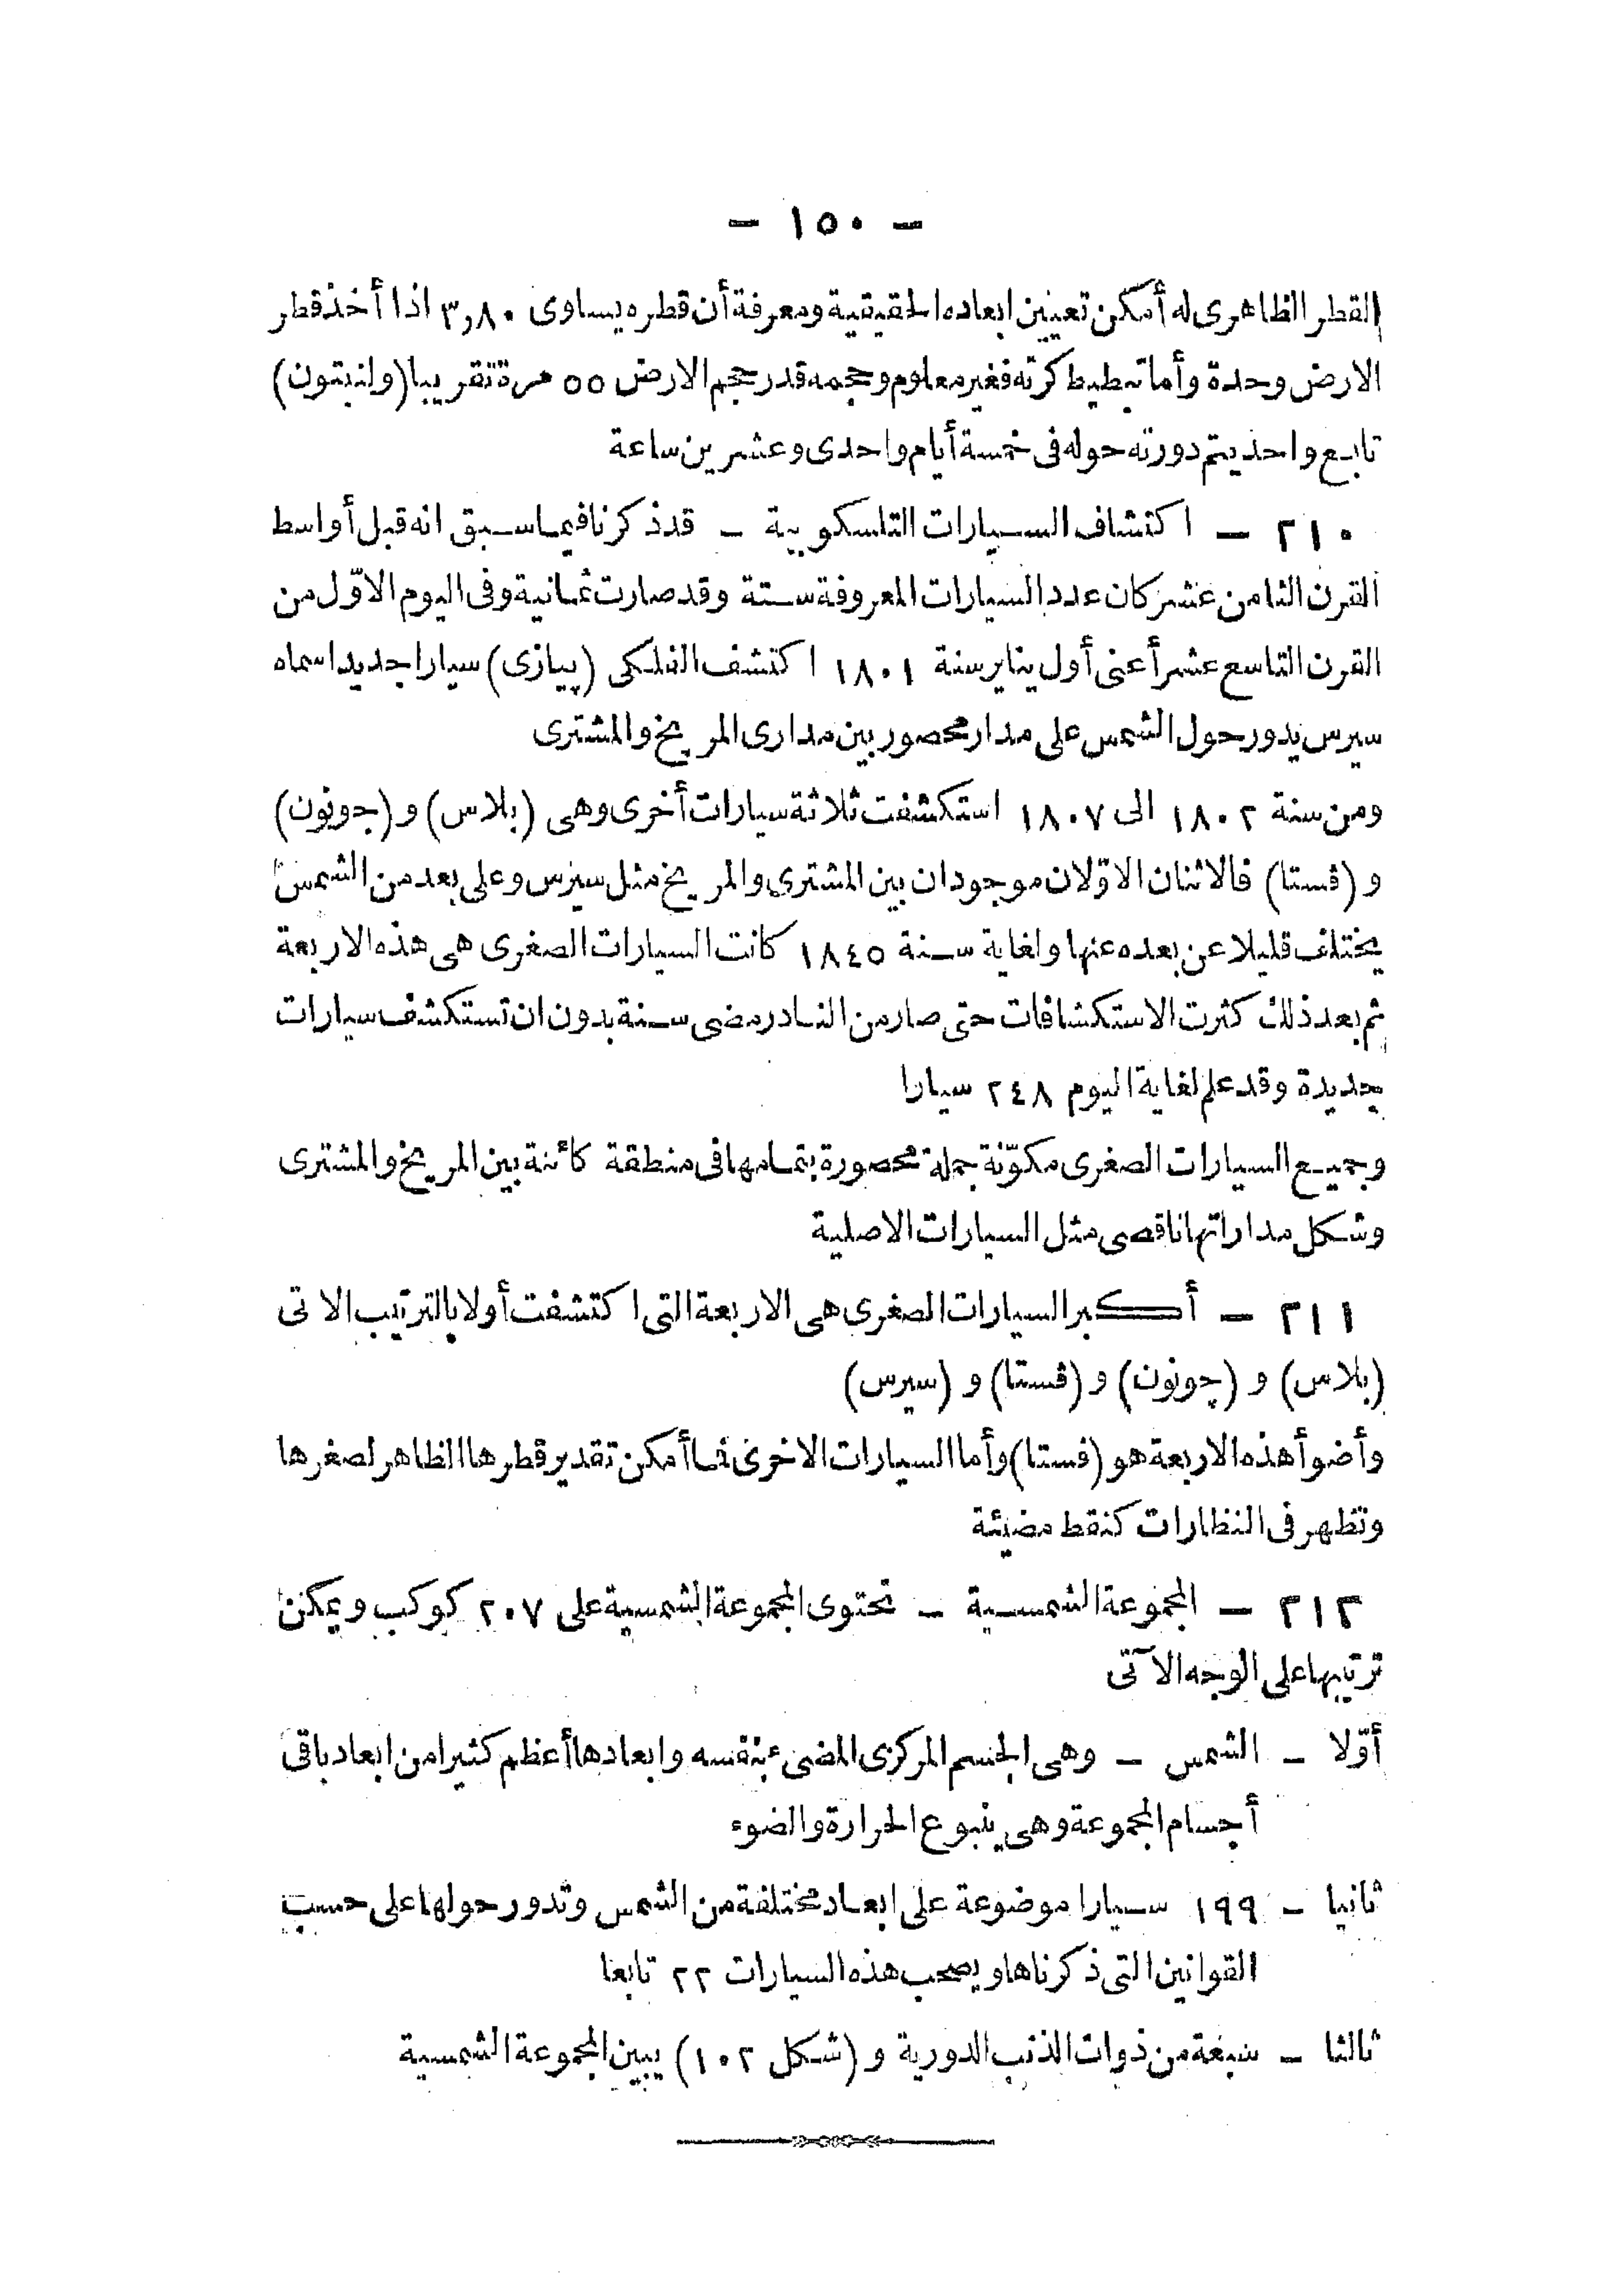 - ١٥٠ -
القطر الظاهرى له أمكن تعيين ابعاده الحقيقية ومعرفة أن قطره يساوى ٣,٨٠ اذا أخذ قطر
الارض وحدة وأما تبطيط كرته فغير معلوم وحجمه قدر حجم الارض ٥٥ مرة تقريبا (ولنبتون)
تابع واحد يتم دورته حوله فى خمسة أيام واحدى وعشرين ساعة
٢١٠ - اكتشاف السيارات التلسكوبية - قد ذكرنا فيما سبق انه قبل أواسط
القرن الثامن عشر كان عدد السيارات المعروفة ستة وقد صارت ثمانية وفى اليوم الاوّل من
القرن التاسع عشر أعنى أول يناير سنة ١٨٠١ اكتشف الفلكى (پيازى) سيارا جديدا سماه
سيرس يدور حول الشمس على مدار محصور بين مدارى المريخ والمشترى
ومن سنة ١٨٠٢ الى ١٨٠٧ استكشفت ثلاثة سيارات أخرى وهى (بلاس) و (جونون)
و (ڤستا) فالاثنان الاوّلان موجودان بين المشترى والمريخ مثل سيرس وعلى بعد من الشمس
يختلف قليلا عن بعده عنها ولغاية سنة ١٨٤٥ كانت السيارات الصغرى هى هذه الاربعة
ثم بعد ذلك كثرت الاستكشافات حتى صار من النادر مضى سنة بدون ان تستكشف سيارات
جديدة وقد علم لغاية اليوم ٢٤٨ سيارا
وجميع السيارات الصغرى مكوّنة جملة محصورة بتمامها فى منطقة كائنة بين المريخ والمشترى
وشكل مداراتها ناقصى مثل السيارات الاصلية
٢١١ - أكبر السيارات الصغرى هى الاربعة التى اكتشفت أولا بالترتيب الاتى
(بلاس) و (چونون) و (ڤستا) و (سيرس)
وأضوأ هذه الاربعة هو (فستا) وأما السيارات الاخرى فما أمكن تقدير قطرها الظاهر لصغرها
وتظهر فى النظارات كنقط مضيئة
٢١٢ - المجموعة الشمسية - تحتوى المجموعة الشمسية على ٢٠٧ كوكب ويمكن
ترتيبها على الوجه الآتى
أوّلا - الشمس - وهى الجسم المركزى المضىء بنفسه وابعادها أعظم كثيرا من ابعاد باقى
أجسام المجموعة وهى ينبوع الحرارة والضوء
ثانيا - ١٩٩ سيارا موضوعة على ابعاد مختلفة من الشمس وتدور حولها على حسب
القوانين التى ذكرناها ويصحب هذه السيارات ٢٢ تابعا
ثالثا - سبعة من ذوات الذنب الدورية و (شكل ١٠٢) يبين المجموعة الشمسية